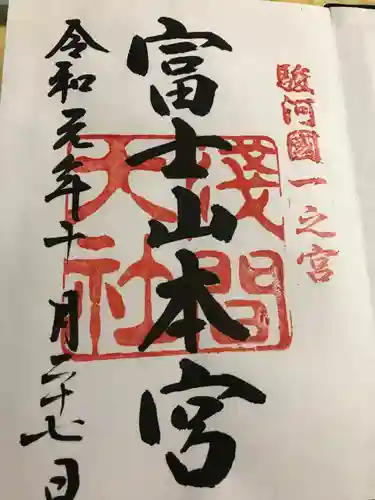 駿河國一之宮
富士山本宮
淺間大社
令和元年十月二十七日